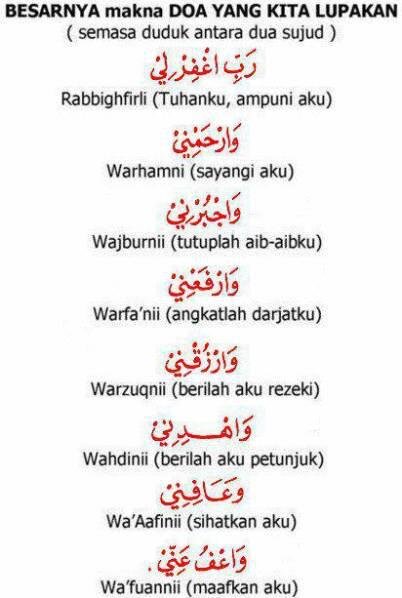 BESARNYA makna DOA YANG KITA LUPAKAN
( semasa duduk antara dua sujud )
رَبِّ اغْفِرْ لِيْ
Rabbighfirli (Tuhanku, ampuni aku)
وَارْحَمْنِيْ
Warhamni (sayangi aku)
وَاجْبُرْنِيْ
Wajburnii (tutuplah aib-aibku)
وَارْفَعْنِيْ
Warfa’nii (angkatlah darjatku)
وَارْزُقْنِيْ
Warzuqnii (berilah aku rezeki)
وَاهْـــدِنِيْ
Wahdinii (berilah aku petunjuk)
وَعَافِنِيْ
Wa’Aafinii (sihatkan aku)
وَاعْفُ عَنِّيْ.
Wa’fuannii (maafkan aku)